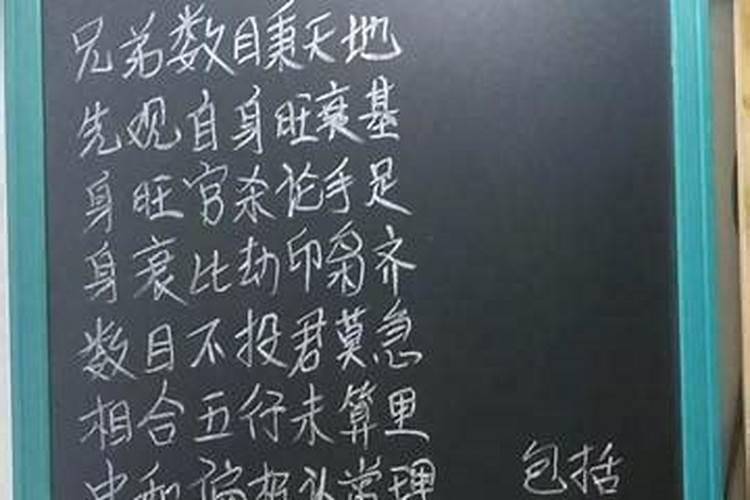 兄弟数目秉天地
先观自身旺衰基
身旺官杀论手足
身衰比劫印枭齐
数目不投君莫急
相合五行未算里
中和偏枯以常理
包括